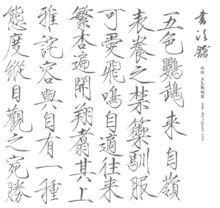 書法館
五色鸚鵡來自嶺
表養之禁籞馴服
可愛飛鳴自適往來
繁杏遍開翔翥其上
雅詫容與自有一種
態度縱目觀之宛勝